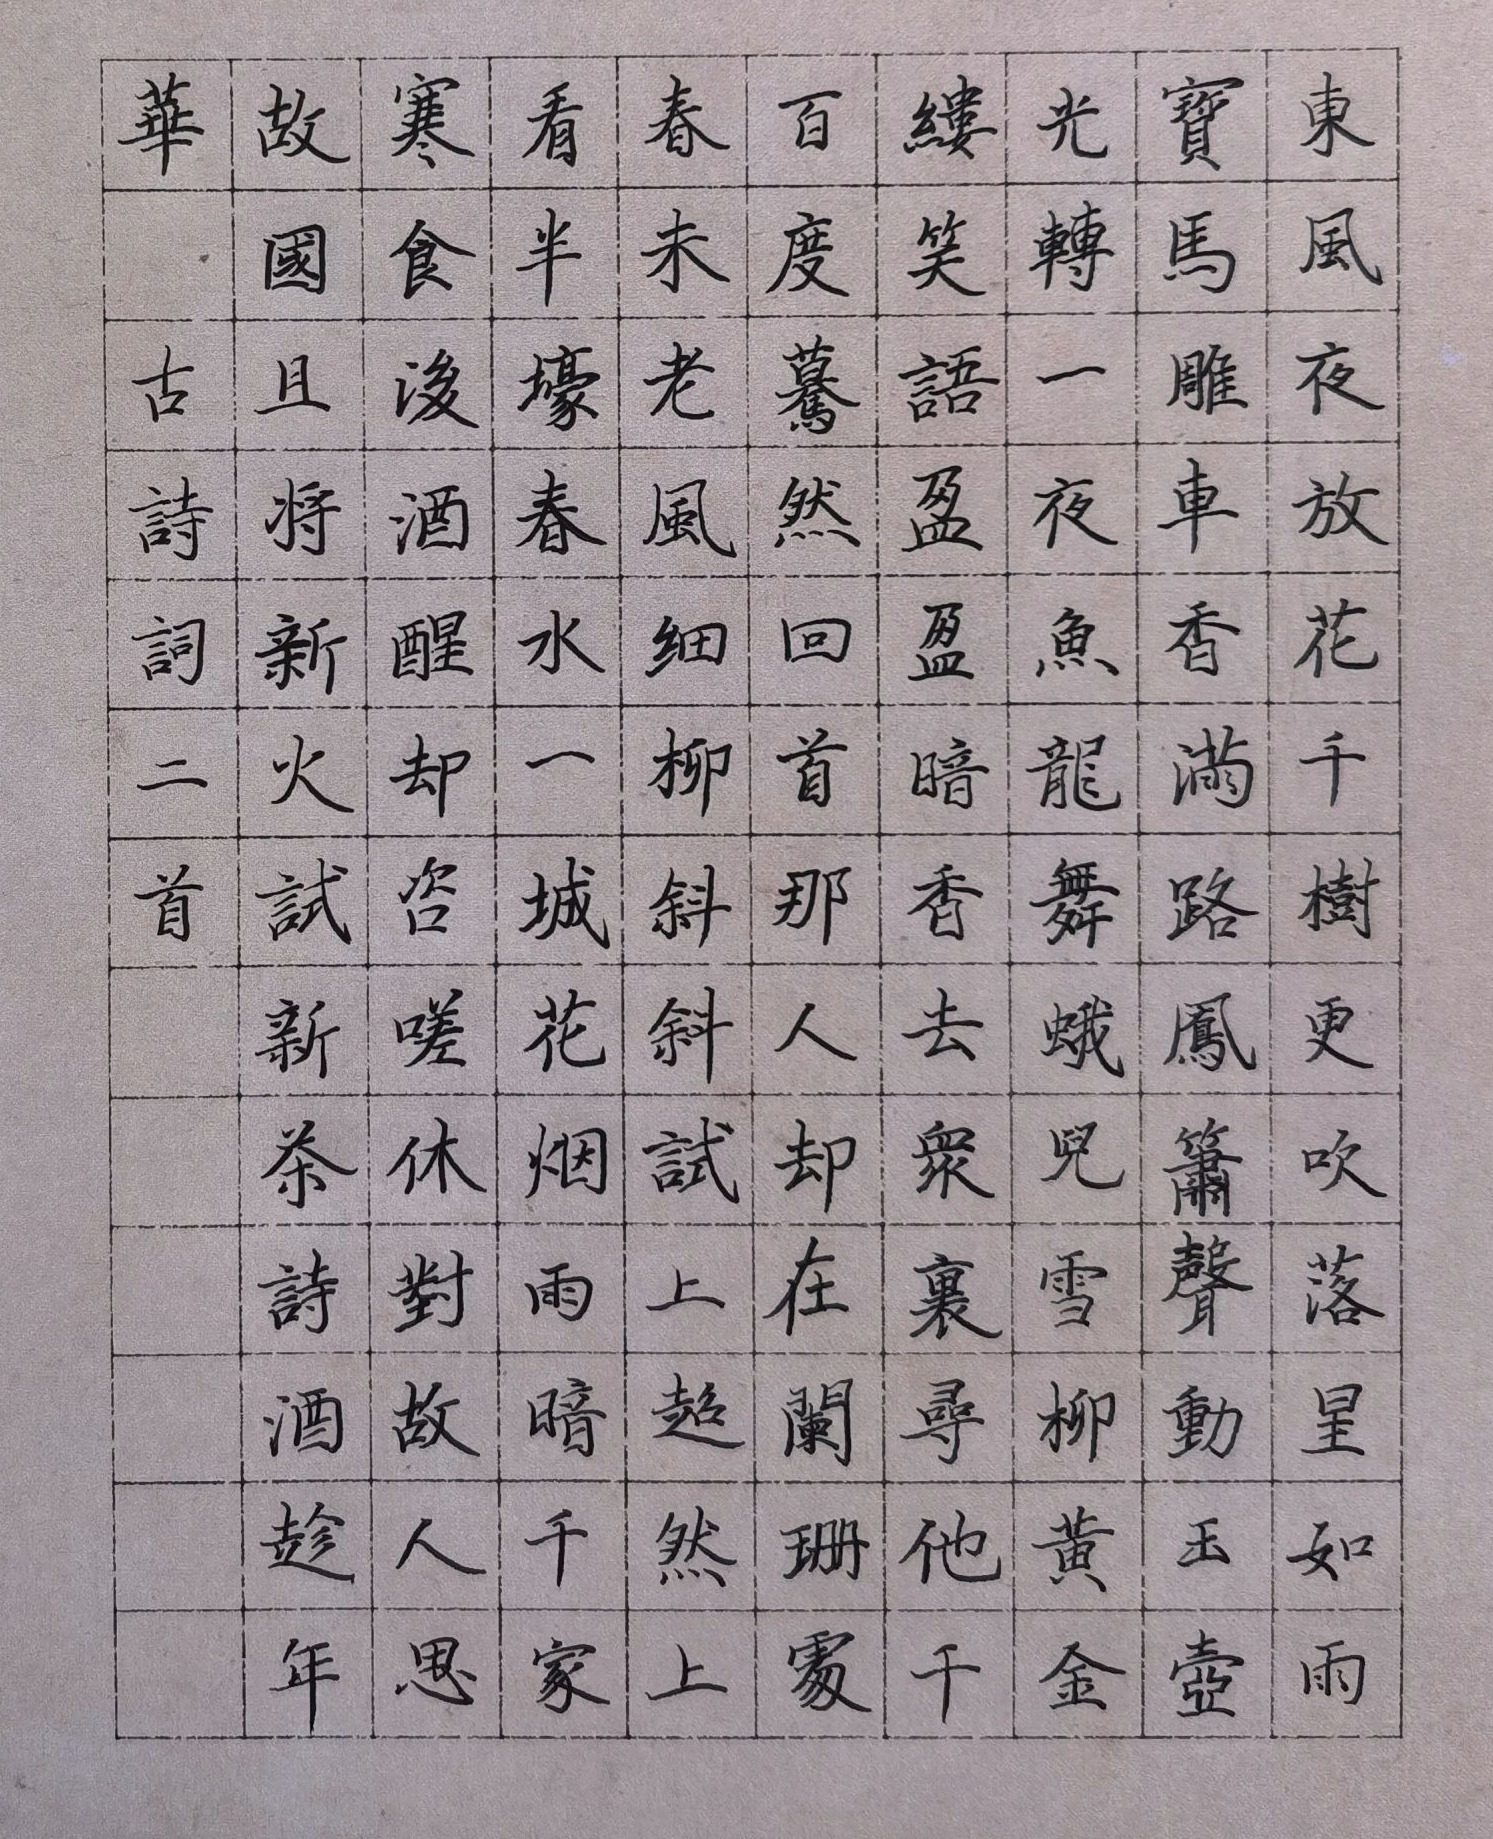 東風夜放花千樹更吹落星如雨
寶馬雕車香滿路鳳簫聲動玉壺
光轉一夜魚龍舞蛾兒雪柳黃金
縷笑語盈盈暗香去眾裏尋他千
百度驀然回首那人却在闌珊處
春未老風細柳斜斜試上超然上
看半壕春水一城花烟雨暗千家
寒食後酒醒却咨嗟休對故人思
故國且將新火試新茶詩酒趁年
華 古詩詞二首